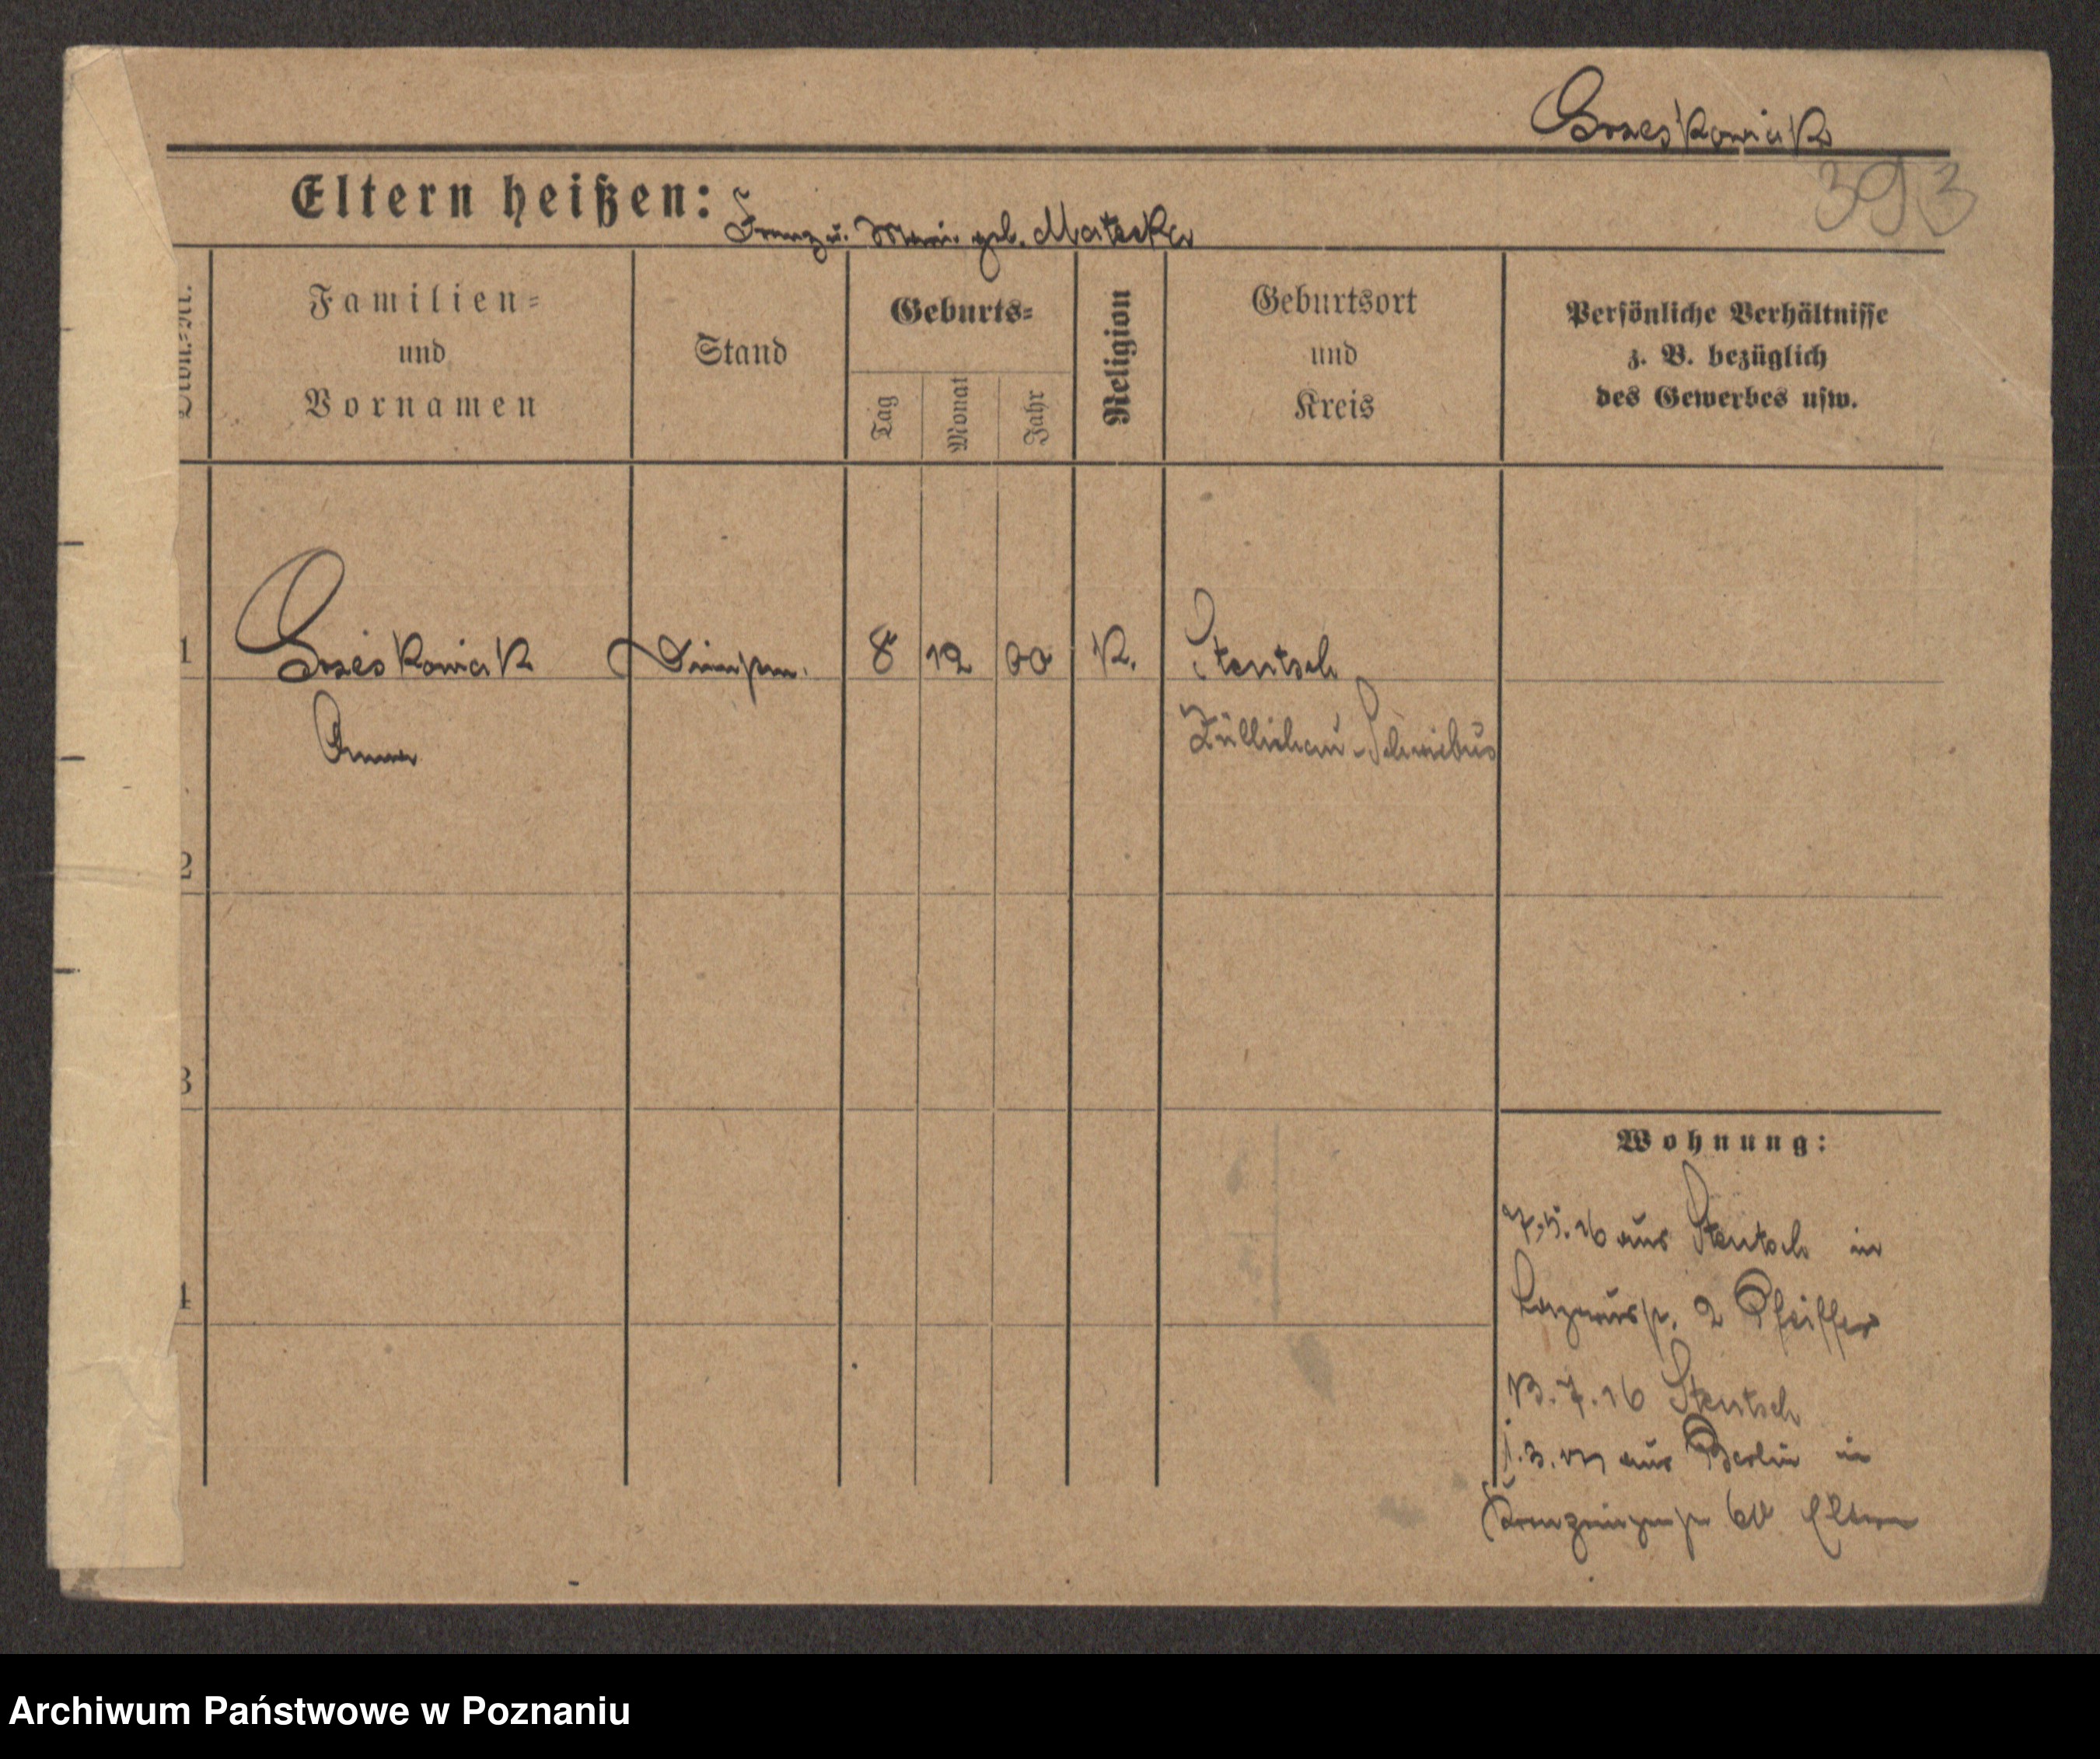 Goześkowiak
393
Eltern heißen: Franz u. Marie geb. Matecka
Ordn.-Nr.
Familien-
und
Vornamen
Stand
Geburts-
Tag
Monat
Jahr
Religion
Geburtsort
und
Kreis
Persönliche Verhältnisse
z. B. bezüglich
des Gewerbes usw.
1
8 12 00 K. Stentsch
Anna
Züllichau-Schwiebus
2
3
4
Wohnung:
aus Stentsch in
2 Pfeiffer
13.7.16 Stentsch
aus Berlin in
60 Eltern
Archiwum Państwowe w Poznaniu